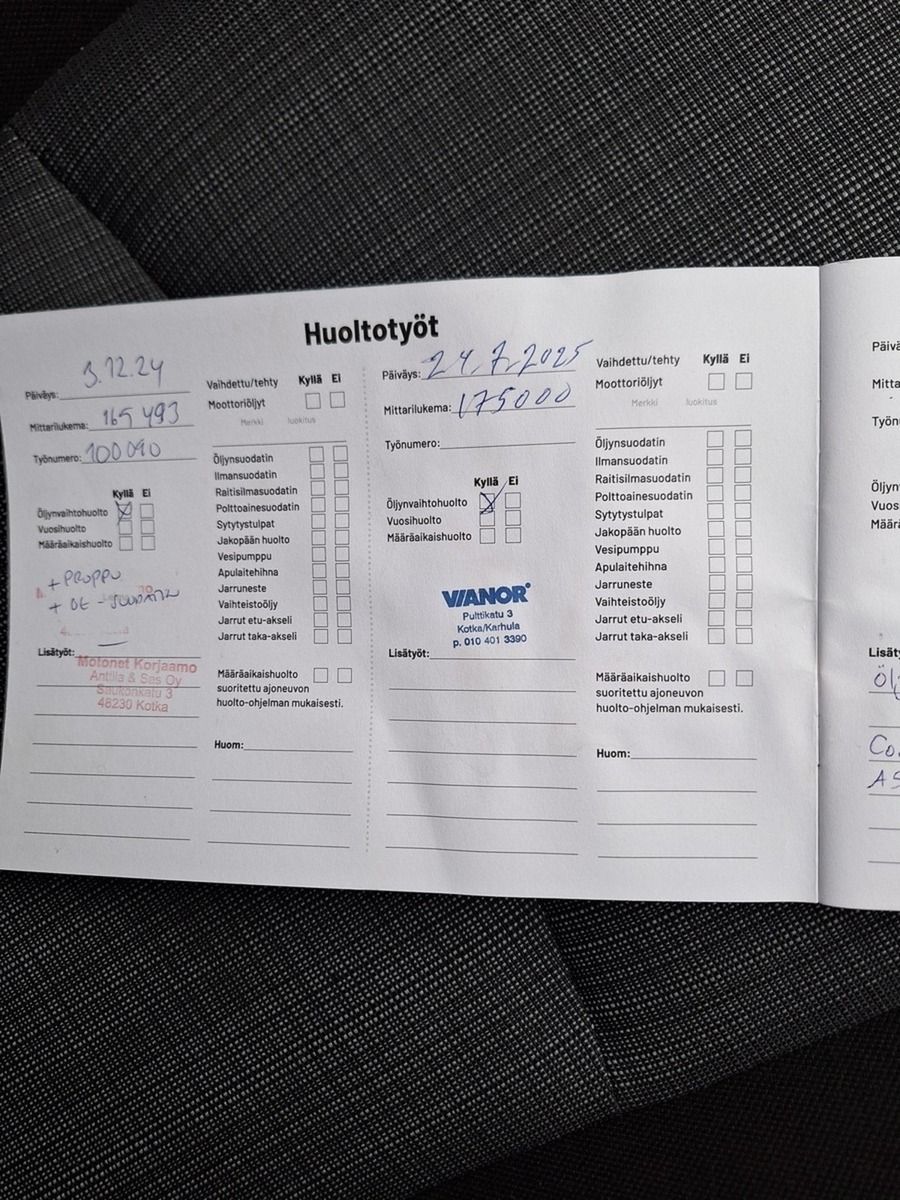 Huoltotyöt
Päiväys: 3.12.24
Mittarilukema: 165 493
Työnumero: 100090
Kyllä Ei
Öljynvaihtohuolto
Vuosihuolto
Määräaikaishuolto
+ PROPPU
Lisätyöt:
Motonet Korjaamo
Anttila & Sas Oy
Saukonkatu 3
48230 Kotka
Vaihdettu/tehty Kyllä Ei
Moottoriöljyt
Merkki luokitus
Öljynsuodatin
Ilmansuodatin
Raitisilmasuodatin
Polttoainesuodatin
Sytytystulpat
Jakopään huolto
Vesipumppu
Apulaitehihna
Jarruneste
Vaihteistoöljy
Jarrut etu-akseli
Jarrut taka-akseli
Määräaikaishuolto
suoritettu ajoneuvon
huolto-ohjelman mukaisesti.
Huom:
Päiväys: 24.7.2025
Mittarilukema: 175000
Työnumero:
Kyllä Ei
Öljynvaihtohuolto
Vuosihuolto
Määräaikaishuolto
VIANOR
Pulttikatu 3
Kotka/Karhula
p. 010 401 3390
Lisätyöt:
Vaihdettu/tehty Kyllä Ei
Moottoriöljyt
Merkki luokitus
Öljynsuodatin
Ilmansuodatin
Raitisilmasuodatin
Polttoainesuodatin
Sytytystulpat
Jakopään huolto
Vesipumppu
Apulaitehihna
Jarruneste
Vaihteistoöljy
Jarrut etu-akseli
Jarrut taka-akseli
Määräaikaishuolto
suoritettu ajoneuvon
huolto-ohjelman mukaisesti.
Huom:
Päivä
Mitta
Työn
Öljyn
Vuos
Määrä
Lisät
Co
AS